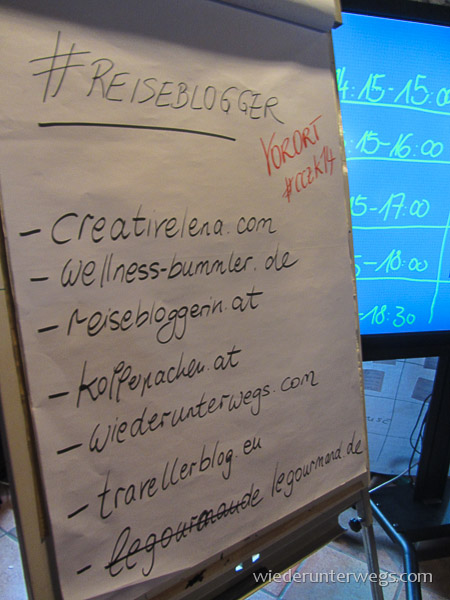 #REISEBLOGGER
VORORT
#cczk14
- creativelena.com
- wellness-bummler.de
- reisebloggerin.at
- kofferpacken.at
- wiederunterwegs.com
- travellerblog.eu
- legourmande legourmand.de
4:15-15:00
15-16:00
5-17:00
5-18:00
-18:30
wiederunterwegs.com